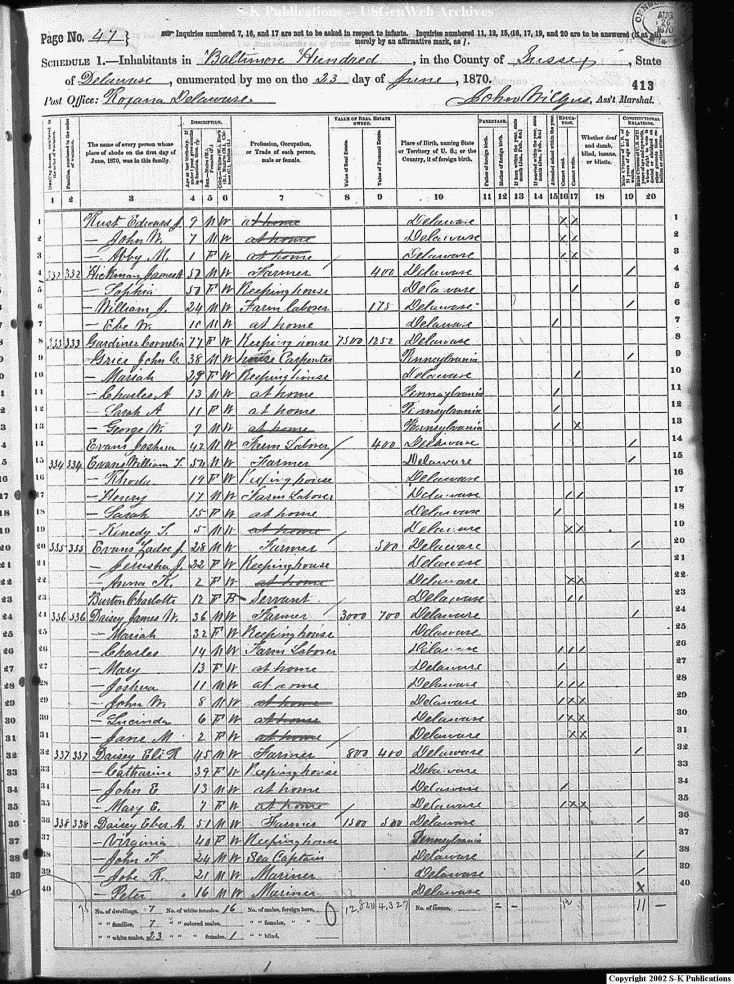 S-K Publications - USGenWeb Archives
Page No. 47 } Inquiries numbered 7, 16, and 17 are not to be asked in respect to infants. Inquiries numbered 11, 12, 15, 16, 17, 19, and 20 are to be answered (if at all)
merely by an affirmative mark, as /.
AUG 26 1870
SCHEDULE 1.—Inhabitants in Baltimore Hundred, in the County of Sussex, State
of Delaware, enumerated by me on the 23 day of June, 1870.
413
Post Office: Roxana Delaware. John Wilgus, Ass't Marshal.
DESCRIPTION. VALUE OF REAL ESTATE OWNED. PARENTAGE. EDUCATION. CONSTITUTIONAL RELATIONS.
The name of every person whose place of abode on the first day of June, 1870, was in this family.
Profession, Occupation, or Trade of each person, male or female.
Value of Real Estate. Value of Personal Estate.
Place of Birth, naming State or Territory of U. S.; or the Country, if of foreign birth.
Father of foreign birth. Mother of foreign birth.
Cannot read. Cannot write.
Whether deaf and dumb, blind, insane, or idiotic.
1 2 3 4 5 6 7 8 9 10 11 12 13 14 15 16 17 18 19 20
1 Rust Edward J. 9 M W at home Delaware x x 1
2 — John W. 7 M W at home Delaware x x 2
3 — Abby M. 1 F W at home Delaware 3
4 332 332 Hickman James 50 M W Farmer 400 Delaware / 4
5 — Sophia 50 F W Keeping house Delaware / 5
6 — William J. 24 M W Farm laborer 175 Delaware / 6
7 — Ebe W. 10 M W at home Delaware / 7
8 333 333 Gardiner Cornelia 77 F W Keeping house 7500 1252 Delaware 8
9 Grice John G. 38 M W house Carpenter Pennsylvania / 9
10 — Mariah 29 F W Keeping house Delaware / 10
11 — Charles A 13 M W at home Pennsylvania / 11
12 — Sarah A 11 F W at home Pennsylvania / 12
13 — George W. 9 M W at home Pennsylvania / x 13
14 Evans Joshua 42 M W Farm Laborer / 400 Delaware / 14
15 334 334 Evans William T. 50 M W Farmer Delaware / 15
16 — Rhoda 19 F W Keeping house Delaware 16
17 — Henry 17 M W Farm Laborer Delaware / / 17
18 — Sarah 15 F W at home Delaware / 18
19 — Kinedy T. 5 M W at home / Delaware x x 19
20 335 335 Evans J. 28 M W Farmer 500 Delaware / 20
21 — Jerusha J. 22 F W Keeping house Delaware 21
22 — Anna K. 2 F W at home Delaware x x 22
23 Burton Charlotte 12 F B Servant Delaware / / 23
24 336 336 Daisey James W. 36 M W Farmer 3000 700 Delaware / 24
25 — Mariah 32 F W Keeping house Delaware 25
26 — Charles 14 M W Farm Laborer Delaware / / / 26
27 — Mary 13 F W at home Delaware / 27
28 — Joshua 11 M W at home Delaware / / / 28
29 — John W. 8 M W at home Delaware / x x 29
30 — Lucinda 6 F W at home Delaware / x x 30
31 — Jane M 2 F W at home / Delaware x x 31
32 337 337 Daisey Eli R 45 M W Farmer 800 400 Delaware / 32
33 — Catharine 39 F W Keeping house Delaware 33
34 — John E 13 M W at home Delaware / 34
35 — Mary E. 7 F W at home / Delaware / x x 35
36 338 338 Daisey Eber A. 51 M W Farmer / 1500 500 Delaware / 36
37 — Virginia 40 F W Keeping house Pennsylvania 37
38 — John F. 24 M W Sea Captain Delaware / 38
39 — Jobe R. 21 M W Mariner Delaware / 39
40 — Peter 16 M W Mariner Delaware x 40
No. of dwellings, 7 No. of white females, 16 No. of males, foreign born, 0 4,327 No. of insane, 11
" " families, 7 " " colored males, " " females, " "
" " white males, 23 " " " females, 1 " " blind,
Copyright 2002 S-K Publications